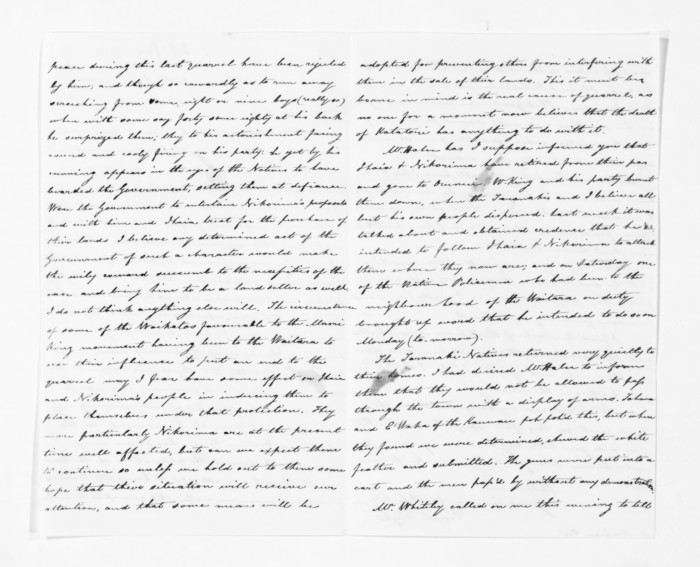 peace during this last quarrel have been rejected
by him, and though so cowardly as to run away
screeching from some eight or nine boys (really so)
when with some say forty some eighty at his back
he surprized them, they to his astonishment facing
round and cooly firing on his party: he yet by his
cunning appears in the eyes of the Natives to have
bearded the Government, setting them at defiance.
Were the Government to entertain Nikorima's proposals
and with him and Ihaia treat for the purchase of
this lands I believe any determined act of the
Government of such a character would make
the wily coward succumb to the necessities of the
case and bring him to be a land seller as well.
I do not think anything else will. The circumstance
of some of the Waikatos favourable to the Maori
King movement having been to the Waitara to
use their influence to put an end to the
quarrel may I fear have some effect on Ihaia
and Nikorima's people in inducing them to
place themselves under that protection. They
more particularly Nikorima are at the present
time well affected, but can we expect them
to continue so unless we hold out to them some
hope that their situation will receive our
attention, and that some means will be
adopted for preventing others from interfering with
them in the sale of their lands. This it must be
borne in mind is the real cause of quarrel, as
no one for a moment now believes that the death
of Katatori has anything to do with it.
Mr Halse has I suppose informed you that
Ihaia & Nikorima have retired from their pas
and gone to . W. King and his party burnt
them down, when the Taranakis and I believe all
but his own people dispersed. Last week it was
talked about and obtained credence that he
intended to follow Ihaia & Nikorima to attack
them where they now are, and on Saturday one
of the Native Policemen who had been to the
neighbour hood of the Waitara on duty
brought up word that he intended to do so on
Monday (to-morrow).
The Taranaki Natives returned very quietly to
their homes. I had desired Mr Halse to inform
them that they would not be allowed to pass
through the town with a display of arms. Tahana
and E Waka of the Kauwau pah potid this, but when
they found we were determined, shewed the white
feather and submitted. The guns were put into a
cart and the men pass'd by without any demonstration.
Mr. Whiteley called on me this evening to tell